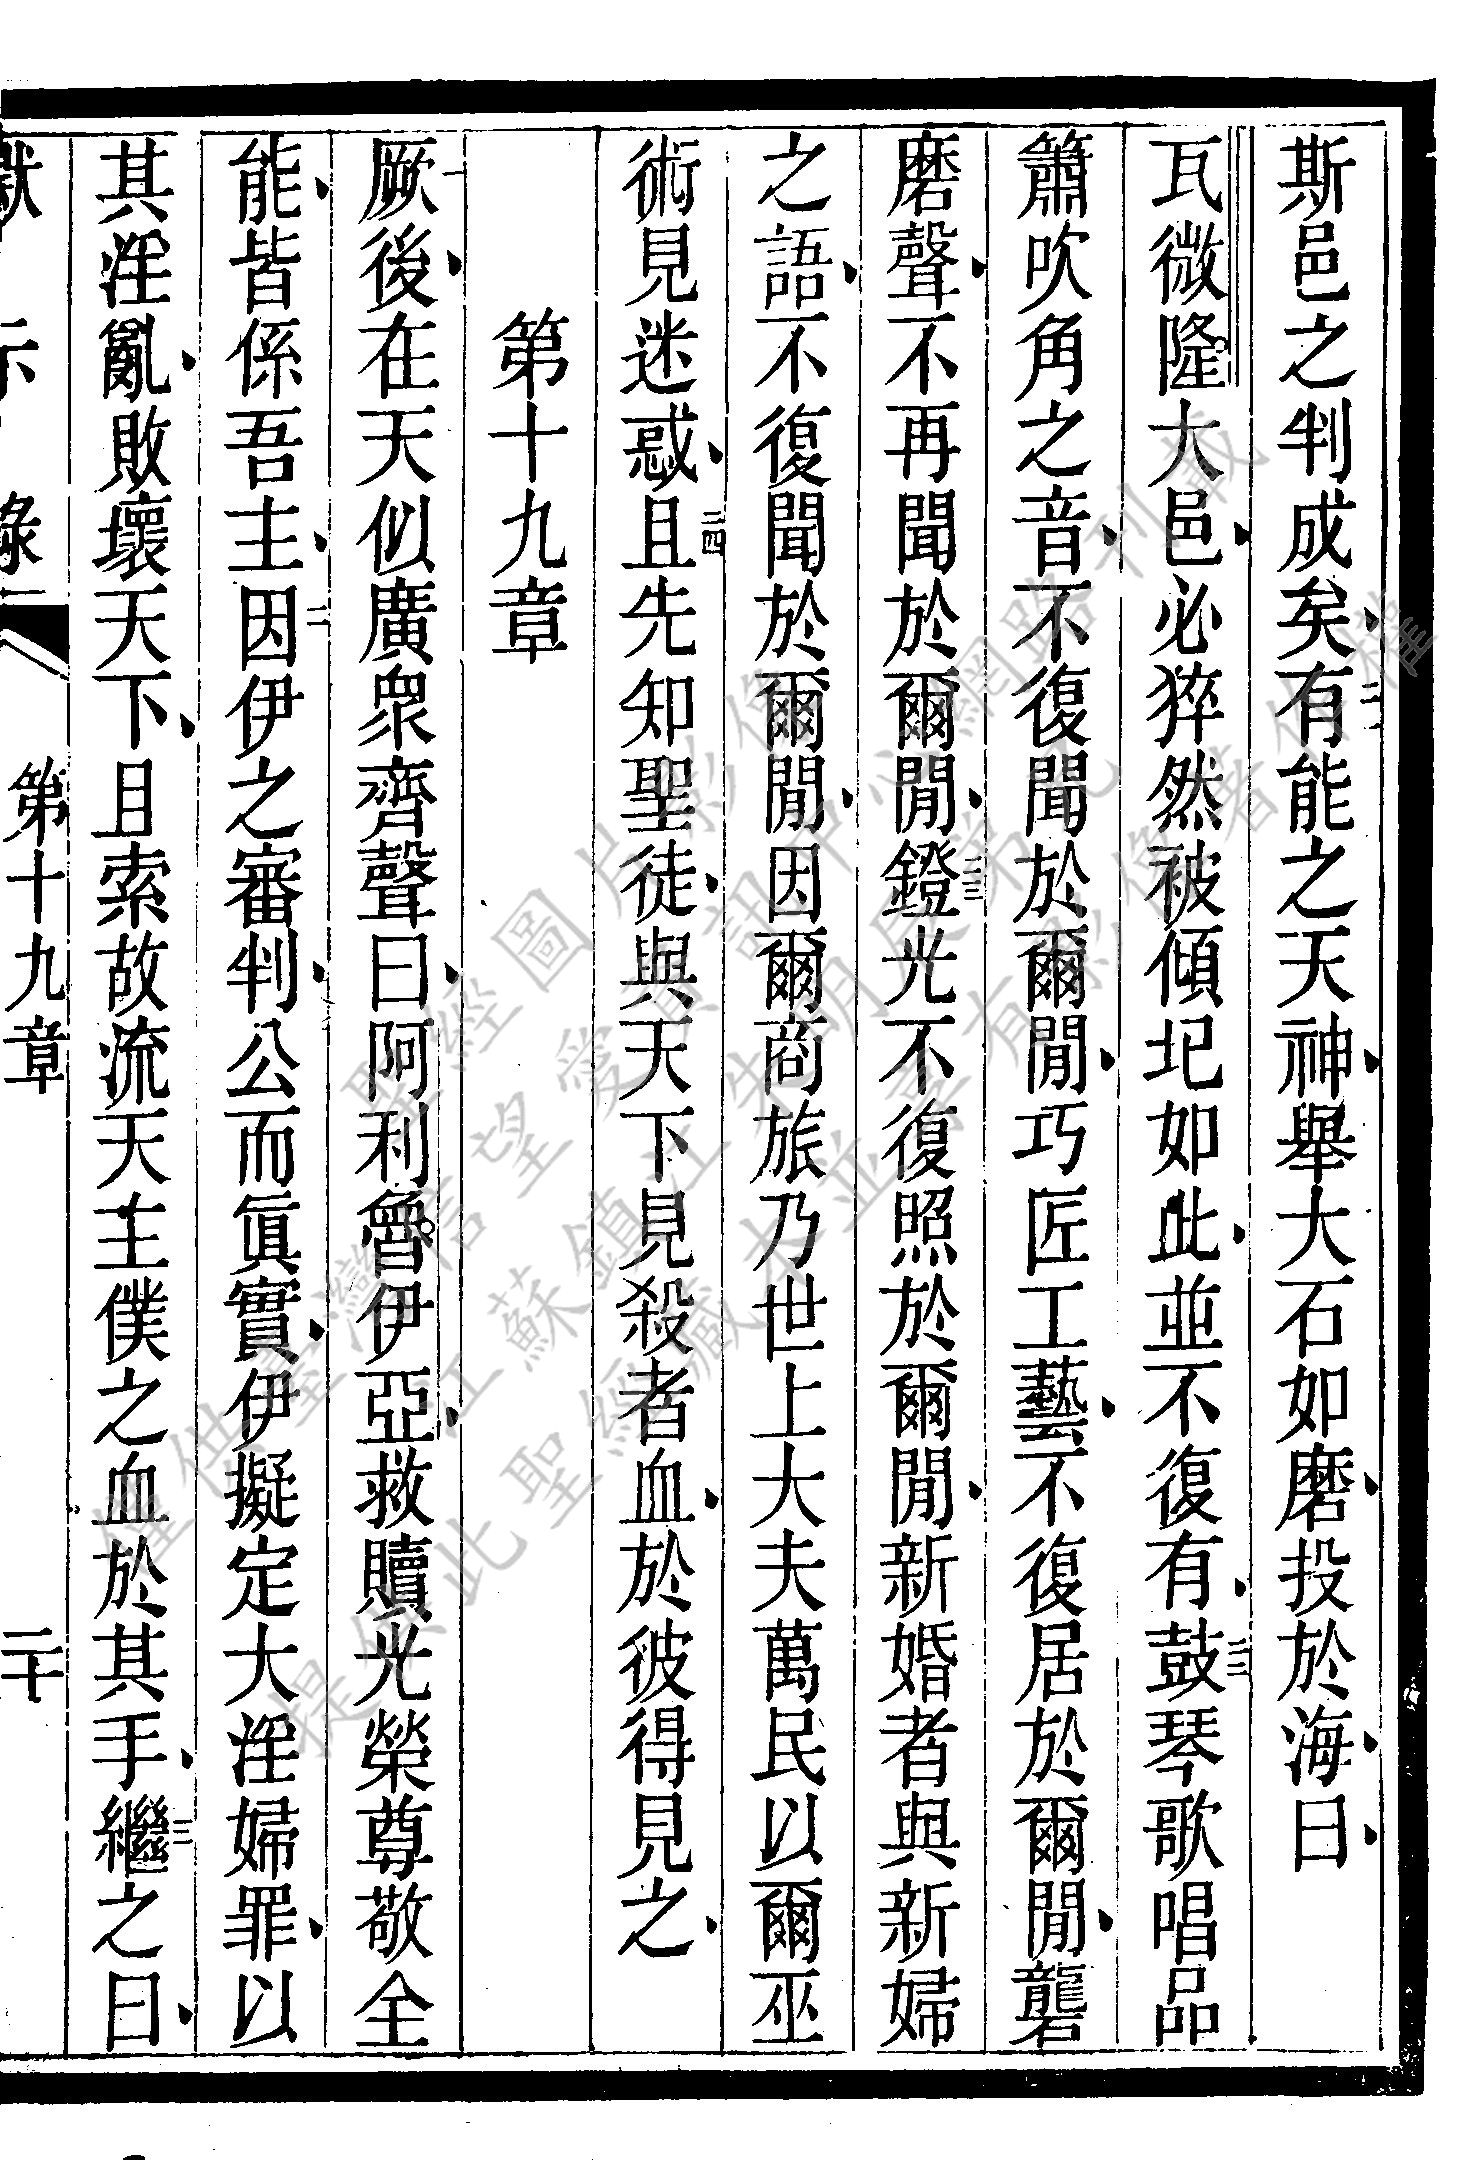 斯邑之判成矣、二一有能之天神、舉大石如磨、投於海、曰、
瓦微隆大邑、必猝然被傾圮如此、並不復有、二二鼓琴歌唱品
簫吹角之音、不復聞於爾閒、巧匠工藝、不復居於爾閒、礱
磨聲、不再聞於爾閒、二三鐙光不復照於爾閒、新婚者與新婦
之語、不復聞於爾閒、因爾商旅乃世上大夫萬民以爾巫
術見迷惑、二四且先知聖徒、與天下見殺者血、於彼得見之、
第十九章
一厥後、在天似廣衆齊聲曰、阿利魯伊亞、救贖光榮尊敬全
能、皆係吾主、二因伊之審判、公而眞實、伊擬定大淫婦罪、以
其淫亂、敗壞天下、且索故流天主僕之血於其手、三繼之曰、
示錄
第十九章
二十
僅供臺灣信望愛資訊中心網路刊載
聖經圖片影像